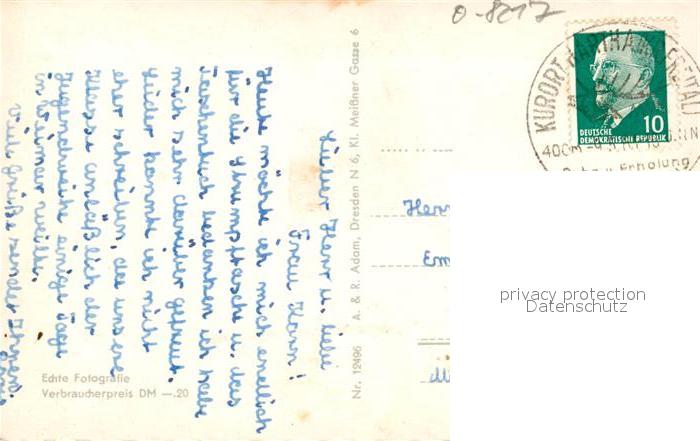 0-8217
KURORT HARTHA
400m
Erholung
DEUTSCHE
DEMOKRATISCHE REPUBLIK
10
Herr
privacy protection
Datenschutz
Lieber Herr u. liebe
Frau Horn!
Heute möchte ich mich endlich
für die Strumpftasche u. das
Taschentuch bedanken ich habe
mich sehr darüber gefreut.
Leider konnte ich nicht
eher schreiben, da unsere
Klasse anläßlich der
Jugendweihe einige Tage
in Weimar weilte.
Viele Grüße sendet Ihnen
Nr. 12496 A. & R. Adam, Dresden N 6, Kl. Meißner Gasse 6
Echte Fotografie
Verbraucherpreis DM —.20